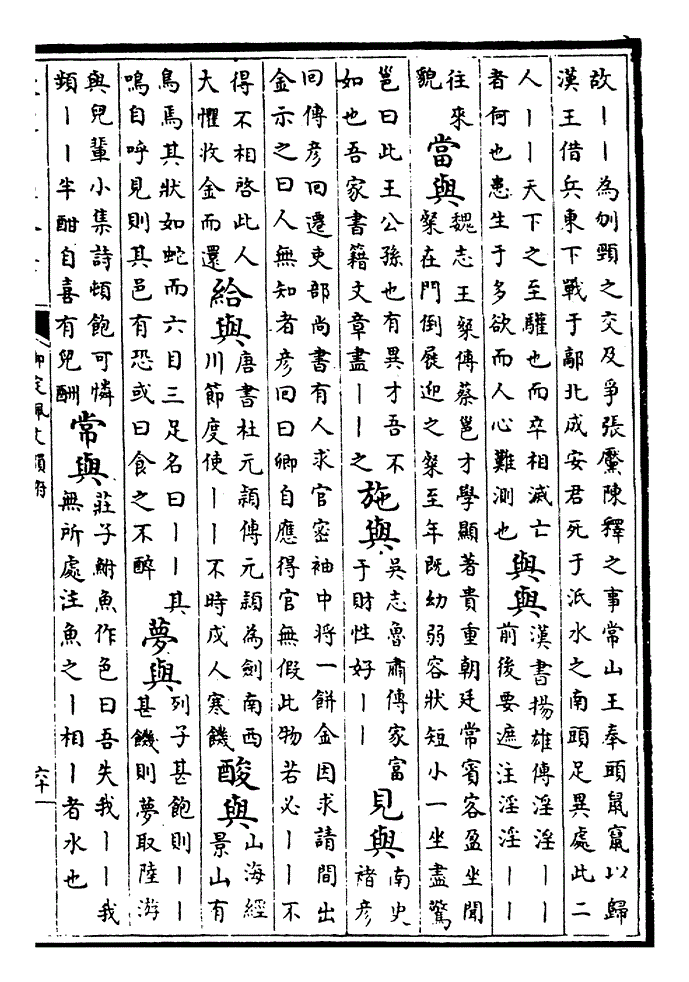 故丨丨為刎頸之交及爭張黶陳釋之事常山王奉頭鼠竄以歸
漢王借兵東下戰于鄗北成安君死于泜水之南頭足異處此二
人丨丨天下之至驩也而卒相滅亡
者何也患生于多欲而人心難測也
與與
漢書揚雄傳淫淫丨丨
前後要遮注淫淫丨丨
往來
貌
當與
魏志王粲傳蔡邕才學顯著貴重朝廷常賓客盈坐聞
粲在門倒屐迎之粲至年既幼弱容狀短小一坐盡驚
邕曰此王公孫也有異才吾不
如也吾家書籍文章盡丨丨之
施與
吳志魯肅傳家富
于財性好丨丨
見與
南史
禇彥
回傳彥回遷吏部尚書有人求官密袖中將一餅金因求請間出
金示之曰人無知者彥回曰卿自應得官無假此物若必丨丨不
得不相啓此人
大懼收金而還
給與
唐書杜元穎傳元穎為劍南西
川節度使丨丨不時戍人寒饑
酸與
山海經
景山有
鳥焉其狀如蛇而六目三足名曰丨丨其
鳴自呼見則其邑有恐或曰食之不醉
夢與
列子甚飽則丨丨
甚饑則夢取陸游
與兒輩小集詩頓飽可憐
頻丨丨半酣自喜有兒酬
常與
莊子鮒魚作色曰吾失我丨丨我
無所處注魚之丨相丨者水也
御定佩文韻府
六十一